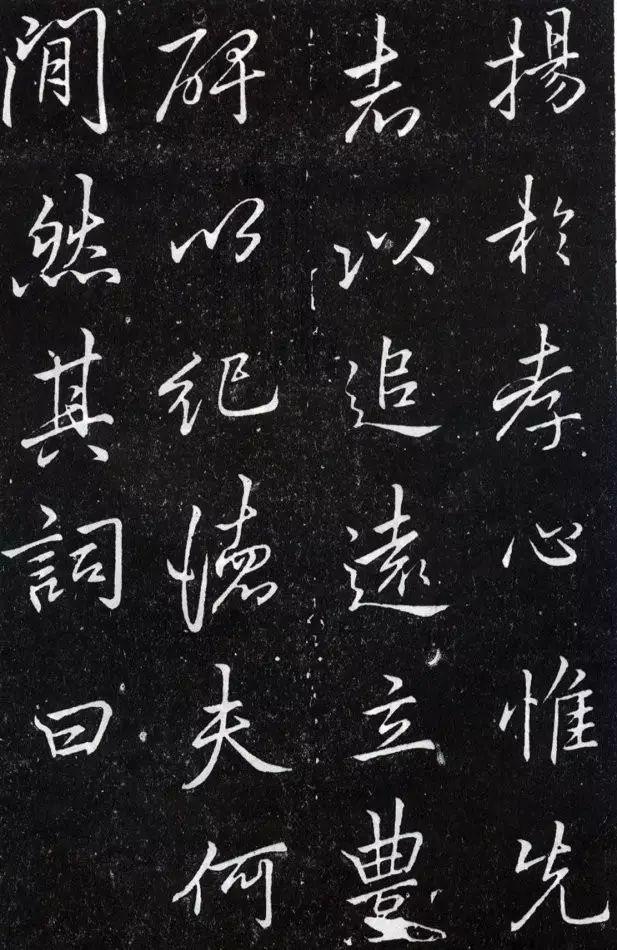 揚於孝心惟先
者以追遠立豊
碑以紀德夫何
閒然其詞曰